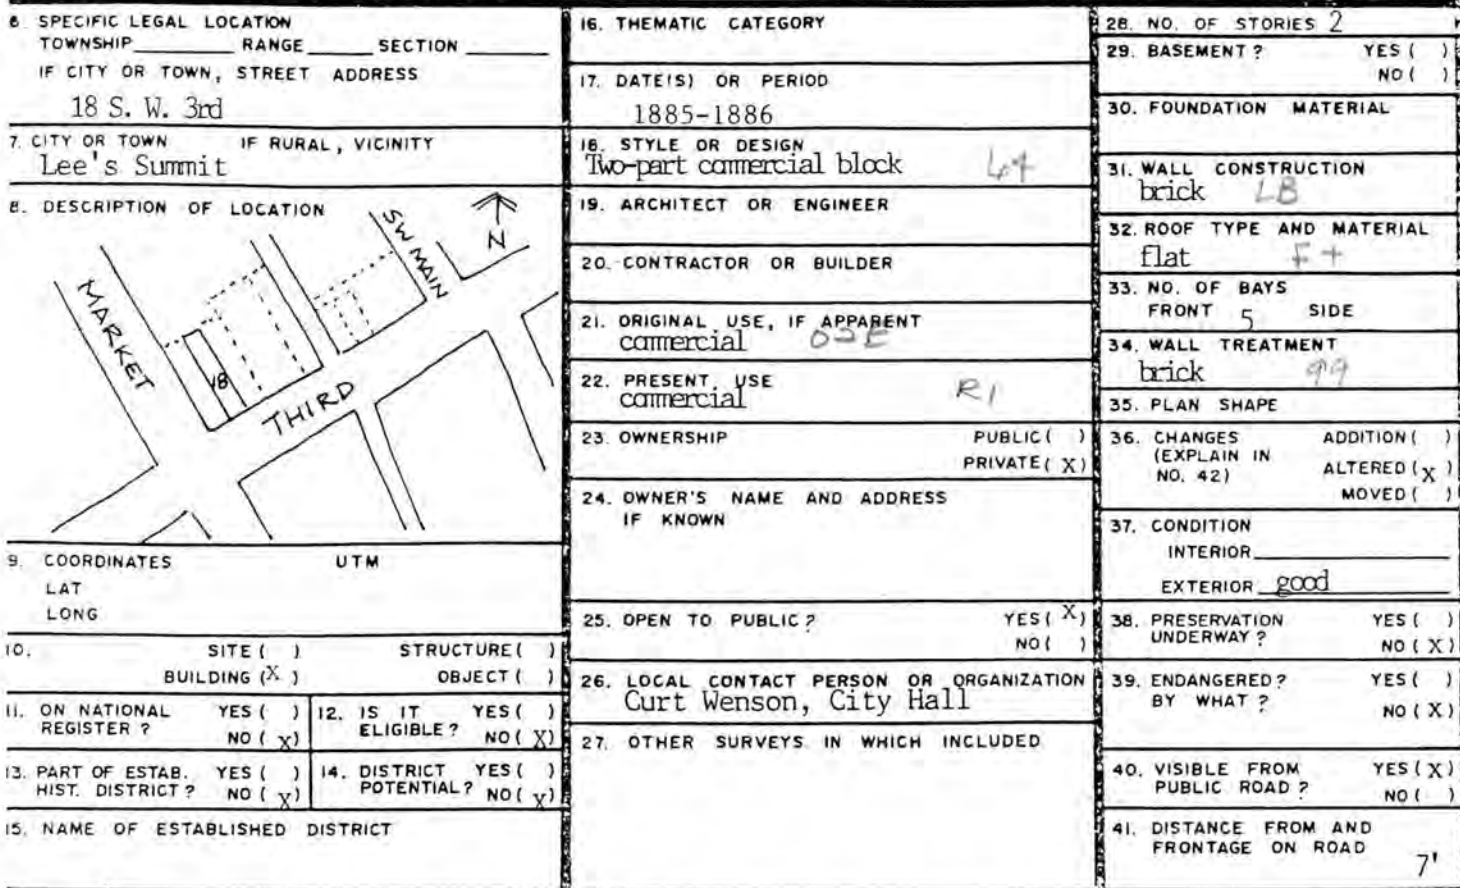 6 SPECIFIC LEGAL LOCATION
TOWNSHIP RANGE SECTION
IF CITY OR TOWN, STREET ADDRESS
18 S. W. 3rd
7. CITY OR TOWN IF RURAL, VICINITY
Lee's Summit
8. DESCRIPTION OF LOCATION
SW MAIN
N
MARKET
18
THIRD
9. COORDINATES UTM
LAT
LONG
10. SITE ( ) STRUCTURE ( )
BUILDING (X) OBJECT ( )
11. ON NATIONAL REGISTER ? YES ( ) NO (X)
12. IS IT ELIGIBLE ? YES ( ) NO (X)
13. PART OF ESTAB. HIST. DISTRICT ? YES ( ) NO (X)
14. DISTRICT POTENTIAL ? YES ( ) NO (X)
15. NAME OF ESTABLISHED DISTRICT
16. THEMATIC CATEGORY
17. DATE(S) OR PERIOD
1885-1886
18. STYLE OR DESIGN
Two-part commercial block
19. ARCHITECT OR ENGINEER
20. CONTRACTOR OR BUILDER
21. ORIGINAL USE, IF APPARENT
commercial 02E
22. PRESENT USE
commercial
23. OWNERSHIP PUBLIC ( )
PRIVATE (X)
24. OWNER'S NAME AND ADDRESS
IF KNOWN
25. OPEN TO PUBLIC ? YES (X)
NO ( )
26. LOCAL CONTACT PERSON OR ORGANIZATION
Curt Wenson, City Hall
27. OTHER SURVEYS IN WHICH INCLUDED
28. NO. OF STORIES 2
29. BASEMENT ? YES ( )
NO ( )
30. FOUNDATION MATERIAL
31. WALL CONSTRUCTION
brick LB
32. ROOF TYPE AND MATERIAL
flat
33. NO. OF BAYS
FRONT 5 SIDE
34. WALL TREATMENT
brick 99
35. PLAN SHAPE
36. CHANGES ADDITION ( )
(EXPLAIN IN ALTERED (X)
NO. 42) MOVED ( )
37. CONDITION
INTERIOR
EXTERIOR good
38. PRESERVATION YES ( )
UNDERWAY ? NO (X)
39. ENDANGERED ? YES ( )
BY WHAT ? NO (X)
40. VISIBLE FROM YES (X)
PUBLIC ROAD ? NO ( )
41. DISTANCE FROM AND
FRONTAGE ON ROAD
7'